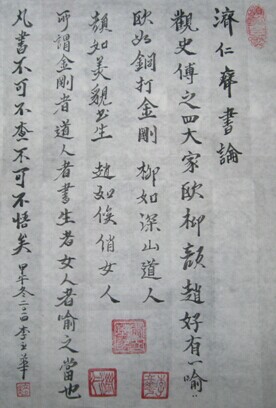 濟仁齋書論
觀史傅之四大家欧柳颜趙好有一喻:
欧如銅打金剛 柳如深山道人
颜如美貌书生 趙如俟俏女人
所謂金剛者道人者書生者女人者喻之當也
凡書不可不查不可不悟矣 甲午冬二百李立華